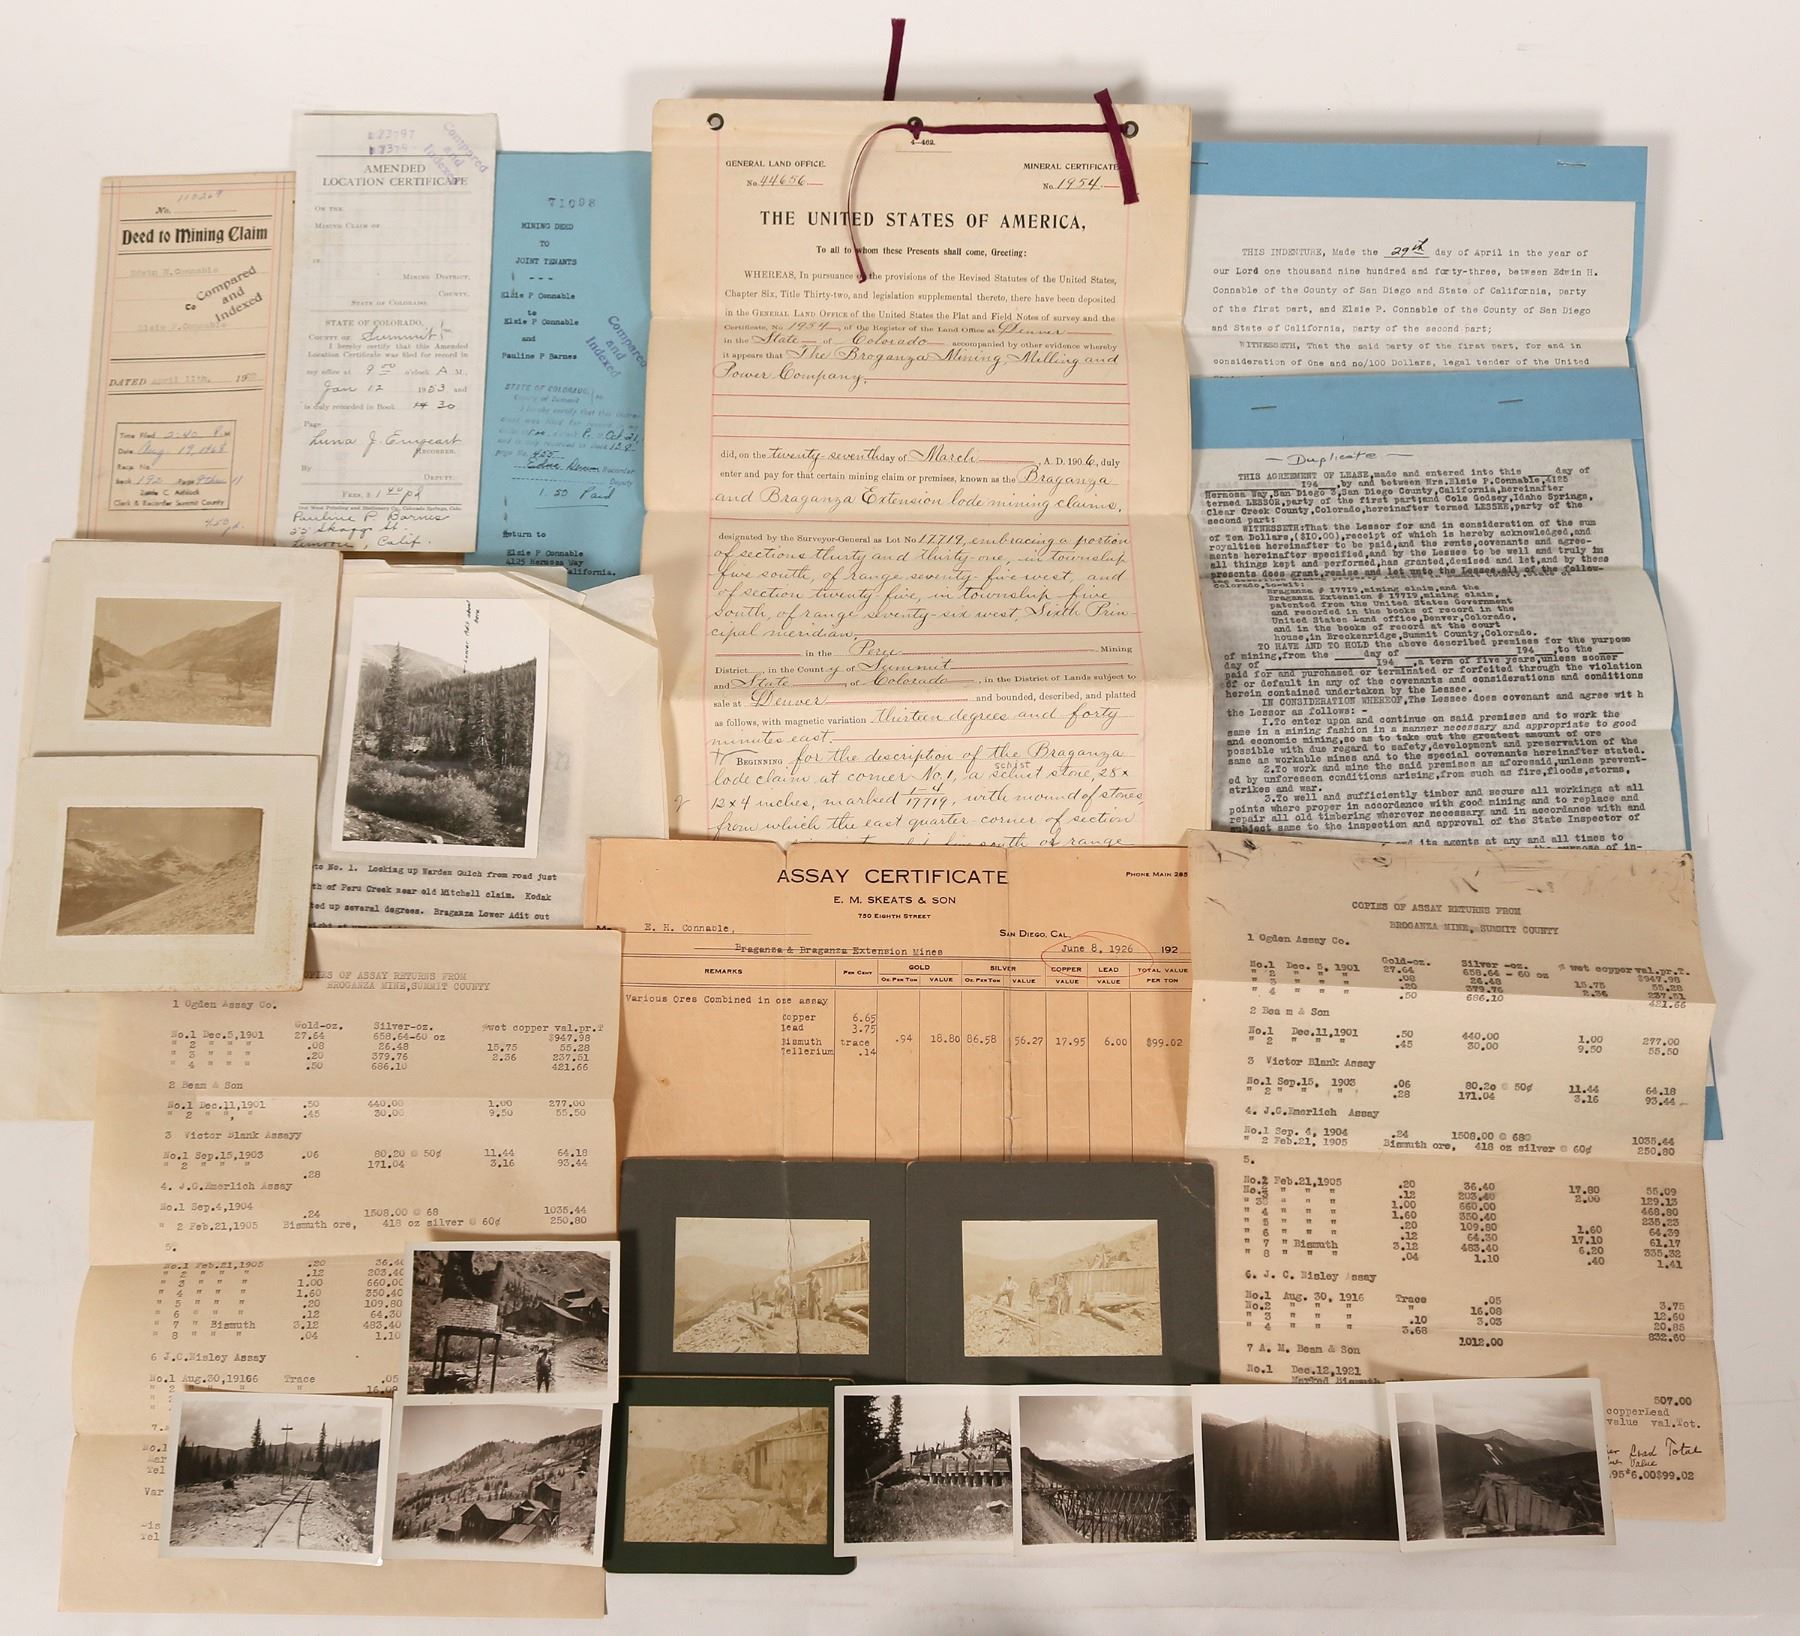 No. 110269
Deed to Mining Claim
Edwin H. Connable
to
Elsie P. Connable
Compared
and
Indexed
DATED April 11th, 19
Time Filed 2:40 P.M
Date Aug. 19, 1968
Recp. No.
Book 192 Page
Clerk & Recorder Summit County
4.50 pd.
73797
Compared
and
Indexed
AMENDED
LOCATION CERTIFICATE
ON THE
MINING CLAIM OF
IN
MINING DISTRICT,
COUNTY,
STATE OF COLORADO.
STATE OF COLORADO,
COUNTY OF Summit
I hereby certify that this Amended
Location Certificate was filed for record in
my office at 9 00 o'clock A. M.,
Jan 12 1953 and
is duly recorded in Book 30
Page
RECORDER.
By
DEPUTY.
FEES, $ 1 40 pd
Pauline P. Barnes
55 Skagg St.
Lemoore, Calif.
71098
MINING DEED
TO
JOINT TENANTS
- - -
Elsie P Connable
to
Elsie P Connable
and
Pauline P Barnes
Compared
and
Indexed
STATE OF COLORADO,
County of Summit
I hereby certify that this
455
Recorder
1.50 Paid
Return to
Elsie P Connable
4125 Hermosa Way
California.
4-462.
GENERAL LAND OFFICE.
No. 44656.
MINERAL CERTIFICATE
No. 1954.
THE UNITED STATES OF AMERICA,
To all to whom these Presents shall come, Greeting:
WHEREAS, In pursuance of the provisions of the Revised Statutes of the United States,
Chapter Six, Title Thirty-two, and legislation supplemental thereto, there have been deposited
in the GENERAL LAND OFFICE of the United States the Plat and Field Notes of survey and the
Certificate, No. 1954, of the Register of the Land Office at Denver
in the State of Colorado accompanied by other evidence whereby
it appears that The Broganza Mining Milling and
Power Company,
did, on the twenty-seventh day of March, A. D. 1906, duly
enter and pay for that certain mining claim or premises, known as the Braganza
and Braganza Extension lode mining claims,
designated by the Surveyor-General as Lot No. 17719, embracing a portion
of sections thirty and thirty-one, in township
five south, of range seventy-five west, and
of section twenty-five, in township five
south, of range seventy-six west, Sixth Prin-
cipal meridian,
in the Peru Mining
District, in the County of Summit
and State of Colorado, in the District of Lands subject to
sale at Denver and bounded, described, and platted
as follows, with magnetic variation thirteen degrees and forty
minutes east.
BEGINNING for the description of the Braganza
schist
lode claim at corner No. 1, a schist stone, 28 x
12 x 4 inches, marked 1-4/17719, with mound of stones,
from which the east quarter-corner of section
south of range
THIS INDENTURE, Made the 29th day of April in the year of
our Lord one thousand nine hundred and forty-three, between Edwin H.
Connable of the County of San Diego and State of California, party
of the first part, and Elsie P. Connable of the County of San Diego
and State of California, party of the second part;
WITNESSETH, That the said party of the first part, for and in
consideration of One and no/100 Dollars, legal tender of the United
- Duplicate -
THIS AGREEMENT OF LEASE,made and entered into this ___ day of
194__,by and between Mrs.Elsie P.Connable,4125
Hermosa Way,San Diego 3,San Diego County,California,hereinafter
termed LESSOR,party of the first part;and Cole Godsey,Idaho Springs,
Clear Creek County,Colorado,hereinafter termed LESSEE,party of the
second part:
WITNESSETH:That the Lessor for and in consideration of the sum
of Ten Dollars,($10.00),receipt of which is hereby acknowledged,and
royalties hereinafter to be paid,and the rents,covenants and agree-
ments hereinafter specified,and by the Lessee to be well and truly in
all things kept and performed,has granted,demised and let,and by these
presents does grant,remise and let unto the Lessee,all of the follow-
Colorado,to-wit:
Braganza # 17719,mining claim,and the
Braganza Extension # 17719,mining claim,
patented from the United States Government
and recorded in the books of record in the
United States Land office,Denver,Colorado,
and in the books of record at the court
house,in Breckenridge,Summit County,Colorado.
TO HAVE AND TO HOLD the above described premises for the purpose
of mining,from the ___ day of ___ 194__,to the ___
day of ___ 194__,a term of five years,unless sooner
paid for and purchased or terminated or forfeited through the violation
of or default in any of the covenants and considerations and conditions
herein contained undertaken by the Lessee.
IN CONSIDERATION WHEREOF,The Lessee does covenant and agree with
the Lessor as follows: -
1.To enter upon and continue on said premises and to work the
same in a mining fashion in a manner necessary and appropriate to good
and economic mining,so as to take out the greatest amount of ore
possible with due regard to safety,development and preservation of the
same as workable mines and to the special covenants hereinafter stated.
2.To work and mine the said premises as aforesaid,unless prevent-
ed by unforeseen conditions arising,from such as fire,floods,storms,
strikes and war.
3.To well and sufficiently timber and secure all workings at all
points where proper in accordance with good mining and to replace and
repair all old timbering wherever necessary and in accordance with and
subject same to the inspection and approval of the State Inspector of
and its agents at any and all times to
No. 1. Looking up Warden Gulch from road just
th of Peru Creek near old Mitchell claim. Kodak
ted up several degrees. Braganza Lower Adit out
ASSAY CERTIFICATE
PHONE MAIN 285
E. M. SKEATS & SON
750 EIGHTH STREET
M E. H. Connable,
SAN DIEGO, CAL.
Braganza & Braganza Extension Mines
June 8, 1926 192
REMARKS PER CENT GOLD SILVER COPPER LEAD TOTAL VALUE
OZ. PER TON VALUE OZ. PER TON VALUE VALUE VALUE PER TON
Various Ores Combined in one assay
Copper 6.65
Lead 3.75
Bismuth trace .94 18.80 86.58 56.27 17.95 6.00 $99.02
Tellerium .14
COPIES OF ASSAY RETURNS FROM
BROGANZA MINE,SUMMIT COUNTY
1 Ogden Assay Co.
Gold-oz. Silver-oz. %wet copper val.pr.T
No.1 Dec.5,1901 27.64 658.64-60 oz $947.98
" 2 " " " .08 26.48 15.75 55.28
" 3 " " " .20 379.76 2.36 237.51
" 4 " " " .50 686.10 421.66
2 Beam & Son
No.1 Dec.11,1901 .50 440.00 1.00 277.00
" 2 " " " .45 30.00 9.50 55.50
3 Victor Blank Assayy
No.1 Sep.15,1903 .06 80.20 @ 50¢ 11.44 64.18
" 2 " " " 171.04 3.16 93.44
.28
4. J.G.Emerlich Assay
No.1 Sep.4,1904 .24 1508.00 @ 68 1035.44
" 2 Feb.21,1905 Bismuth ore, 418 oz silver @ 60¢ 250.80
5.
No.1 Feb.21,1905 .20 36.40
" 2 " " " .12 203.40
" 3 " " " 1.00 660.00
" 4 " " " 1.60 350.40
" 5 " " " .20 109.80
" 6 " " " .12 64.30
" 7 " Bismuth 3.12 483.40
" 8 " " " .04 1.10
6 J.C.Risley Assay
No.1 Aug.30,19166 Trace .05
16.08
COPIES OF ASSAY RETURNS FROM
BROGANZA MINE, SUMMIT COUNTY
1 Ogden Assay Co.
Gold-oz. Silver -oz. % wet copper val.pr.T.
No.1 Dec. 5, 1901 27.64 658.64 - 60 oz $947.98
" 2 " " " .08 26.48 15.75 55.28
" 3 " " " .20 379.76 2.36 237.51
" 4 " " " .50 686.10 421.66
2 Beam & Son
No.1 Dec.11,1901 .50 440.00 1.00 277.00
" 2 " " " .45 30.00 9.50 55.50
3 Victor Blank Assay
No.1 Sep.15, 1903 .06 80.20 @ 50¢ 11.44 64.18
" 2 " " " .28 171.04 3.16 93.44
4. J.G.Emerlich Assay
No.1 Sep. 4, 1904 .24 1508.00 @ 68¢ 1035.44
" 2 Feb.21, 1905 Bismuth ore, 418 oz silver @ 60¢ 250.80
5.
No.1 Feb.21,1905 .20 36.40 17.80 55.09
No.2 " " " .12 203.40 2.00 129.13
" 3 " " " 1.00 660.00 468.80
" 4 " " " 1.60 350.40 235.23
" 5 " " " .20 109.80 1.60 64.39
" 6 " " " .12 64.30 17.10 61.17
" 7 " Bismuth 3.12 483.40 6.20 335.32
" 8 " " " .04 1.10 .40 1.41
6. J. C. Risley Assay
No.1 Aug. 30, 1916 Trace .05
No.2 " " " 16.08 3.75
" 3 " " " .10 3.03 12.60
" 4 " " " 3.68 20.85
1012.00 832.60
7 A. M. Beam & Son
No.1 Dec.12,1921
Marked Bismuth
507.00
copper Lead
value val. Tot.
Lead Total
Value
95 $6.00 $99.02